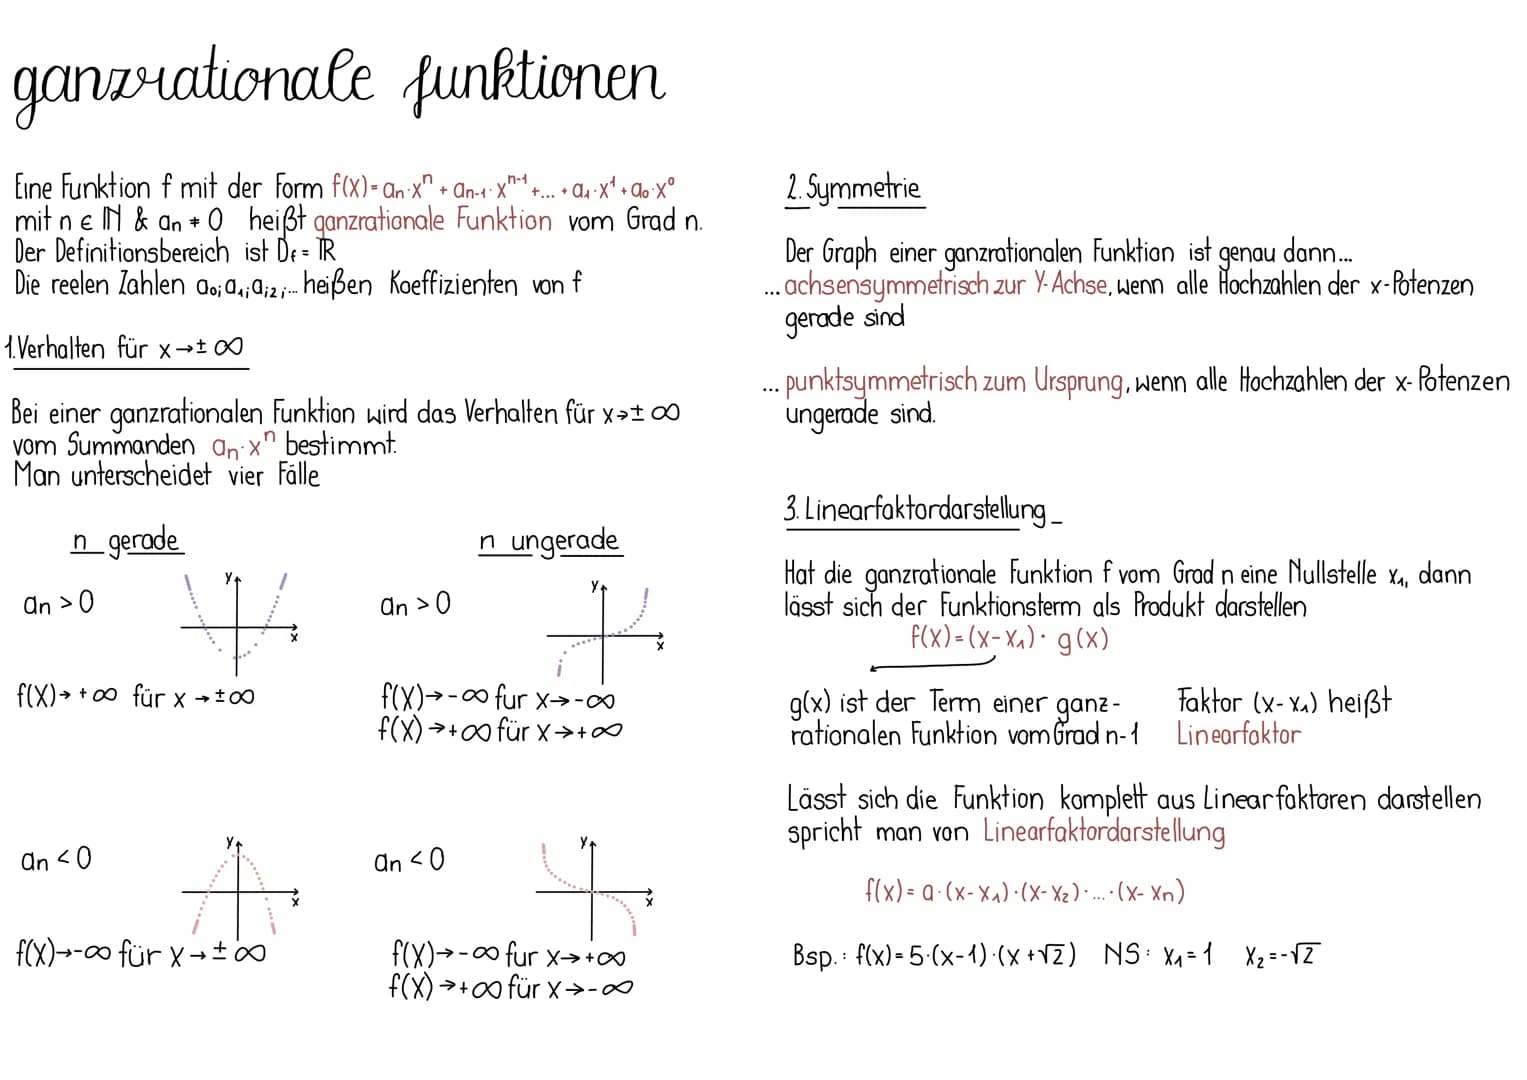 ganzrationale funktionen
Eine Funktion f mit der Form f(x)= aₙ·xⁿ + aₙ₋₁·xⁿ⁻¹ +... + a₁·x¹ + a₀·x⁰
mit n ∈ ℕ & aₙ ≠ 0 heißt ganzrationale Funktion vom Grad n.
Der Definitionsbereich ist D_f = ℝ
Die reelen Zahlen a₀; a₁; a;₂;... heißen Koeffizienten von f
1.Verhalten für x→± ∞
Bei einer ganzrationalen Funktion wird das Verhalten für x→± ∞
vom Summanden aₙ·xⁿ bestimmt.
Man unterscheidet vier Fälle
n gerade
aₙ > 0
y
x
f(x)→ +∞ für x →±∞
n ungerade
aₙ > 0
y
x
f(x)→-∞ fur x→-∞
f(x)→+∞ für x→+∞
aₙ < 0
y
x
f(x)→-∞ für x→±∞
aₙ < 0
y
x
f(x)→-∞ fur x→+∞
f(x)→+∞ für x→-∞
2. Symmetrie
Der Graph einer ganzrationalen Funktion ist genau dann...
... achsensymmetrisch zur Y-Achse, wenn alle Hochzahlen der x-Potenzen
gerade sind
... punktsymmetrisch zum Ursprung, wenn alle Hochzahlen der x-Potenzen
ungerade sind.
3. Linearfaktordarstellung_
Hat die ganzrationale Funktion f vom Grad n eine Nullstelle x₁, dann
lässt sich der Funktionsterm als Produkt darstellen
f(x)=(x-x₁)· g(x)
g(x) ist der Term einer ganz-
rationalen Funktion vom Grad n-1
Faktor (x-x₁) heißt
Linearfaktor
Lässt sich die Funktion komplett aus Linearfaktoren darstellen
spricht man von Linearfaktordarstellung
f(x)= a·(x-x₁)·(x-x₂)·...·(x-xₙ)
Bsp.: f(x)=5·(x-1)·(x+√2) NS: x₁=1 x₂=-√2